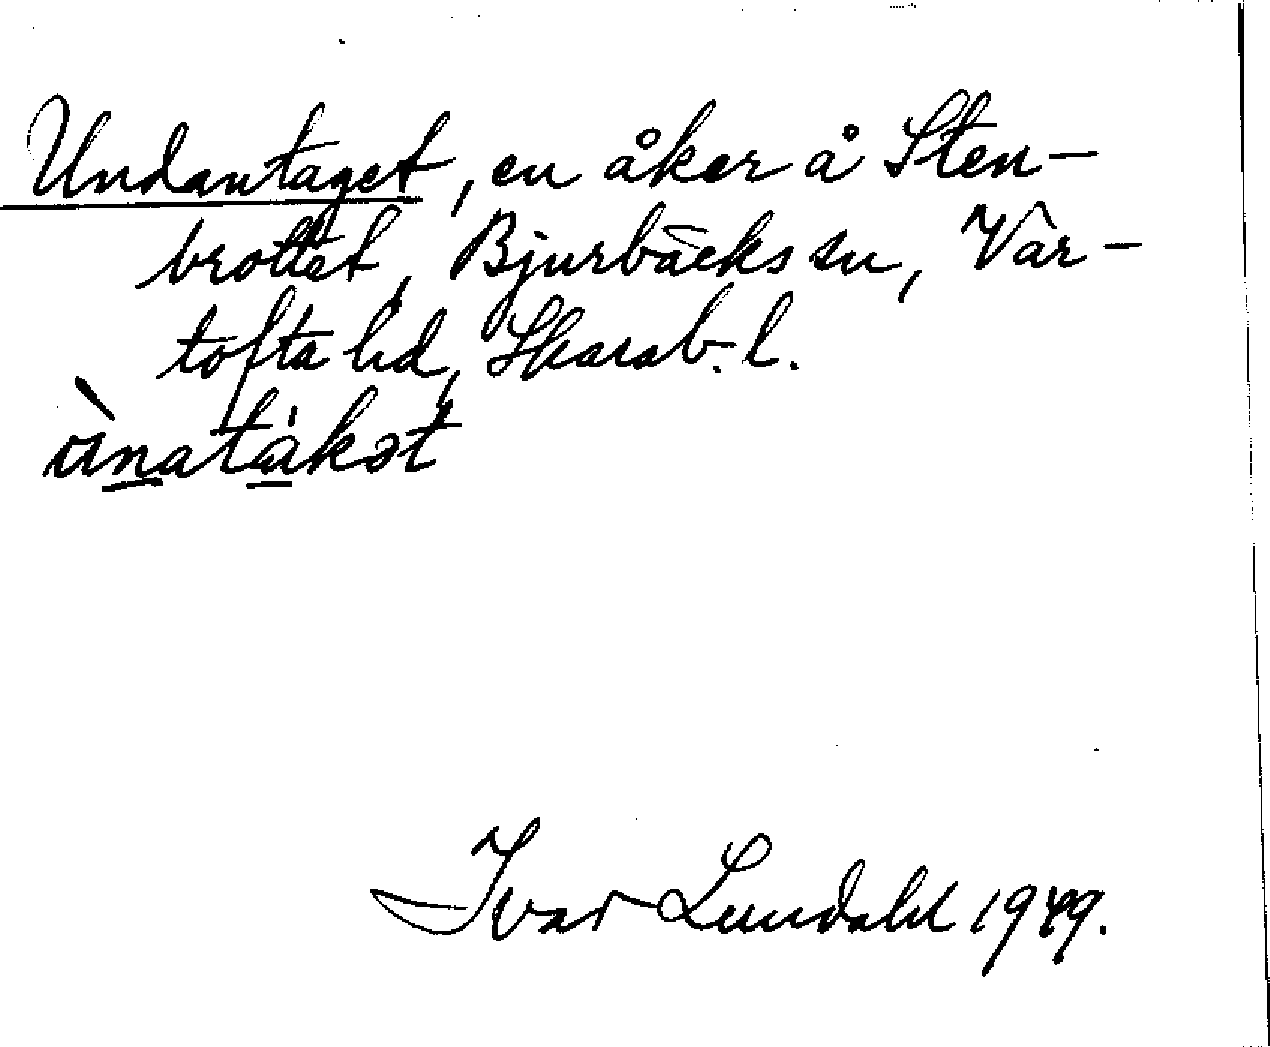 Undantaget, en åker å Sten-
brottet, Bjurbäcks sn, Var-
tofta hd, Skarab. l.
ùnatákət
Ivar Lundahl 1949.